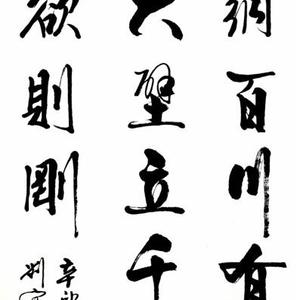 納百川有
大壁立千
欲則剛
辛卯